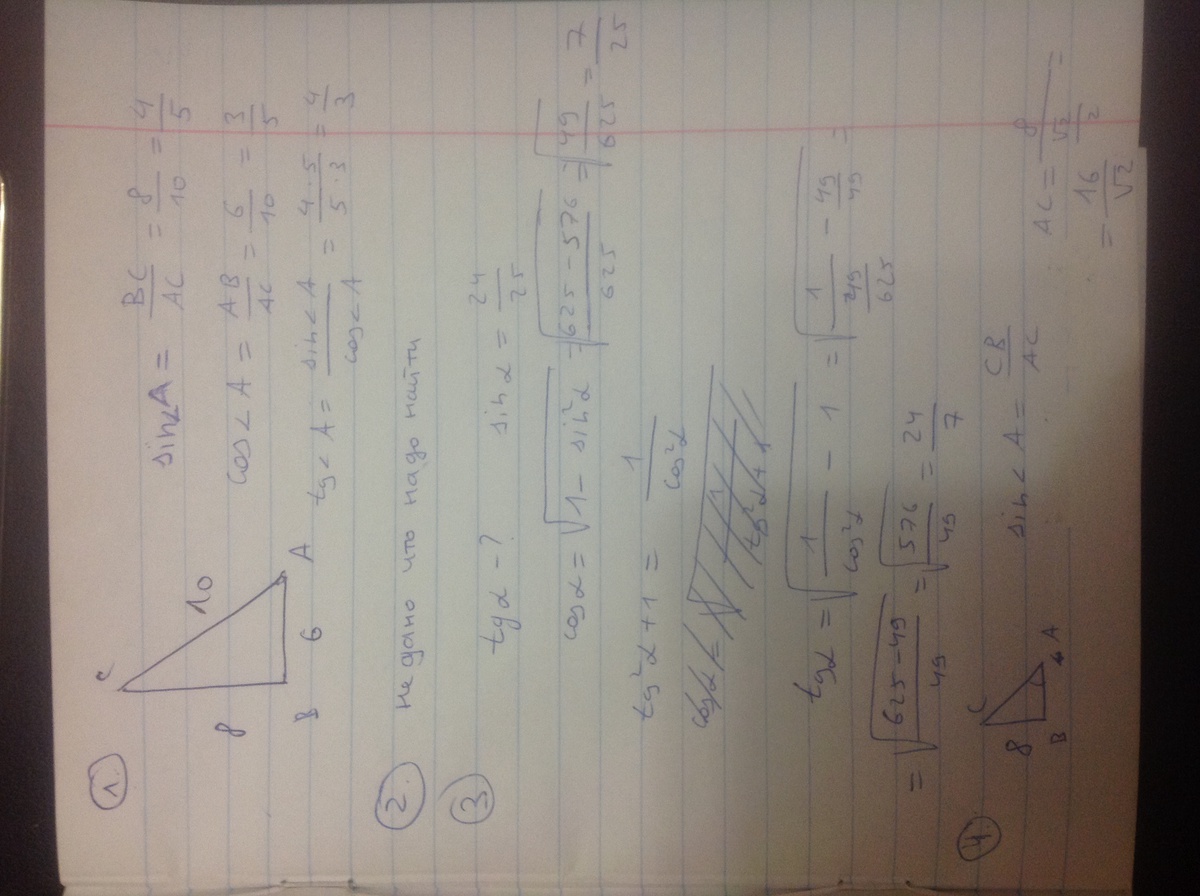 1.
C
10
8
B
6
A
sin<A = BC/AC = 8/10 = 4/5
cos<A = AB/AC = 6/10 = 3/5
tg<A = sin<A/cos<A = 4·5/5·3 = 4/3
2. не дано что надо найти
3 tgα - ? sinα = 24/25
cosα = √(1 - sin²α) = √((625-576)/625) = √(49/625) = 7/25
tg²α + 1 = 1/cos²α
tgα = √(1/cos²α - 1) = √(1/(49/625) - 49/49) =
= √((625-49)/49) = √(576/49) = 24/7
4.
C
8
B
A
sin<A = CB/AC
AC = 8/(√2/2) =
= 16/√2